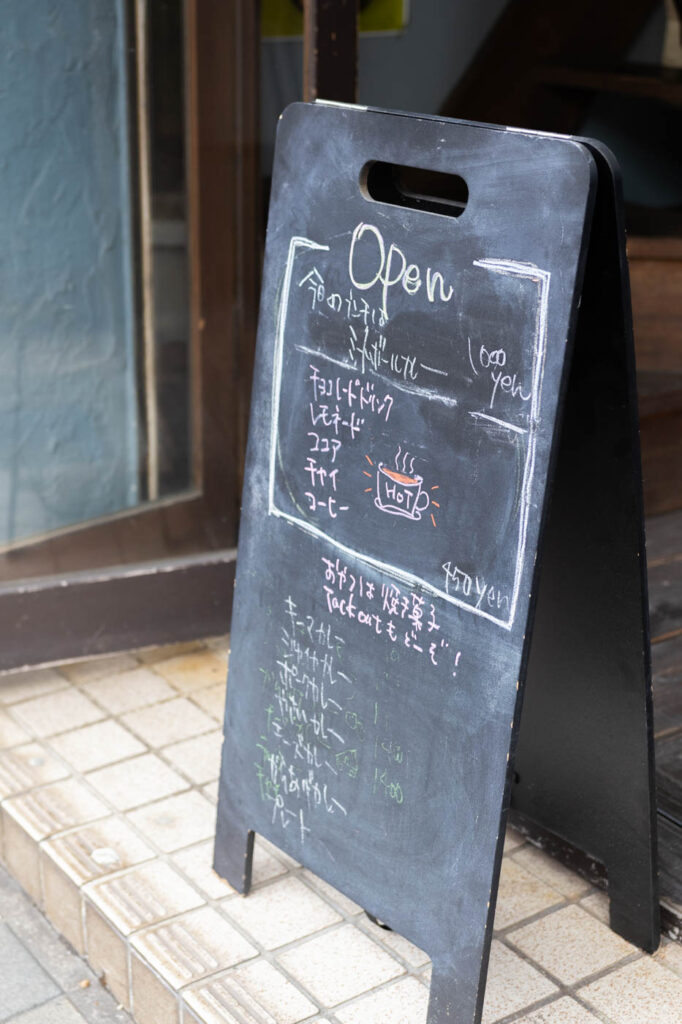 Open
今日のランチは
ミートボールカレー 1000 yen
チョコレートドリンク
レモネード
ココア
チャイ
コーヒー
HOT
450yen
おやつは焼き菓子
Tack outもどーぞ!
キーマカレー
カレー
ポークカレー
やさいカレー
チーズカレー
カレー
プレート